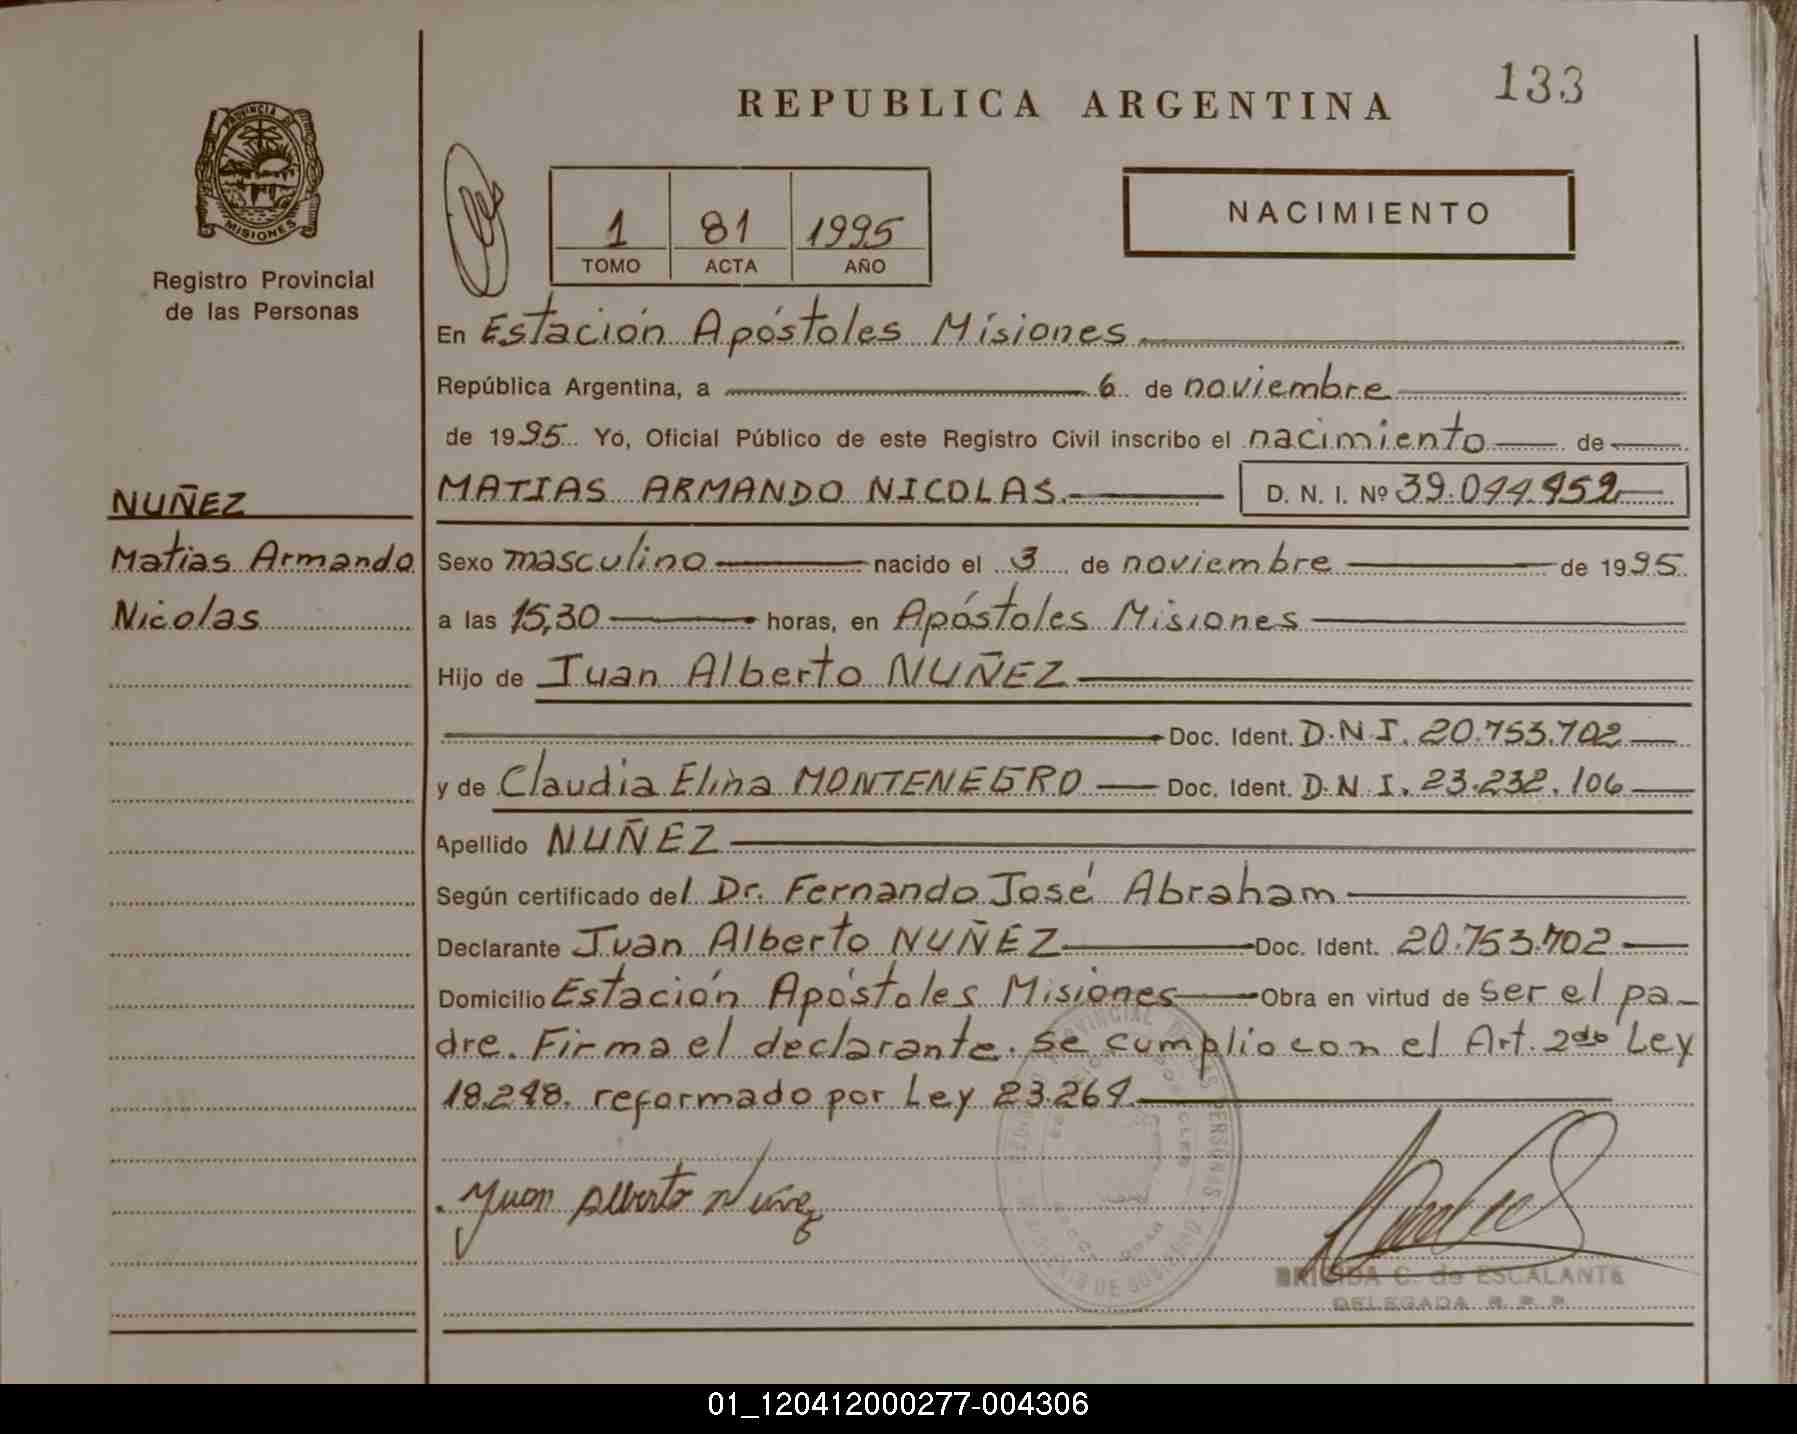 133
REPUBLICA ARGENTINA
PROVINCIA DE
MISIONES
Registro Provincial
de las Personas
1 81 1995
TOMO ACTA AÑO
NACIMIENTO
En Estación Apóstoles Misiones
República Argentina, a 6 de noviembre
de 1995 Yo, Oficial Público de este Registro Civil inscribo el nacimiento de
MATIAS ARMANDO NICOLAS. D. N. I. Nº 39.044.952
NUÑEZ
Matias Armando
Nicolas
Sexo masculino nacido el 3 de noviembre de 1995
a las 15,30 horas, en Apóstoles Misiones
Hijo de Juan Alberto NUÑEZ
Doc. Ident. D.N.I. 20.753.702
y de Claudia Elina MONTENEGRO Doc. Ident. D.N.I. 23.232.106
Apellido NUÑEZ
Según certificado del Dr. Fernando José Abraham
Declarante Juan Alberto NUÑEZ Doc. Ident. 20.753.702
Domicilio Estación Apóstoles Misiones Obra en virtud de ser el pa-
dre. Firma el declarante. Se cumplio con el Art. 2do Ley
18.248. reformado por Ley 23.264.
Juan Alberto Núñez
BRIGIDA C. de ESCALANTE
DELEGADA R. P. P.
01_120412000277-004306